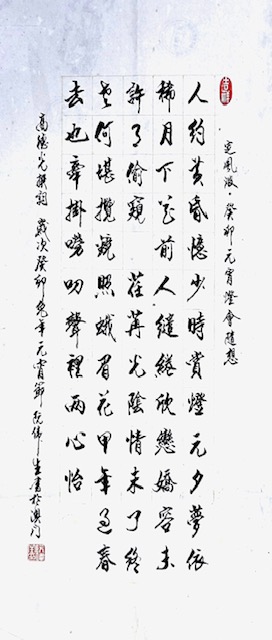 定風波·癸卯元宵燈會隨想
人約黃昏憶少時賞燈元夕夢依
稀月下花前人繾綣欣戀嬌容未
許了偷窺 荏苒光陰情未了終
老何堪攬鏡照蛾眉花甲年過春
去也牽掛嘮叨聲裡兩心怡
高德光撰詞 歲次癸卯兔年元宵節 阮偉生書於澳門